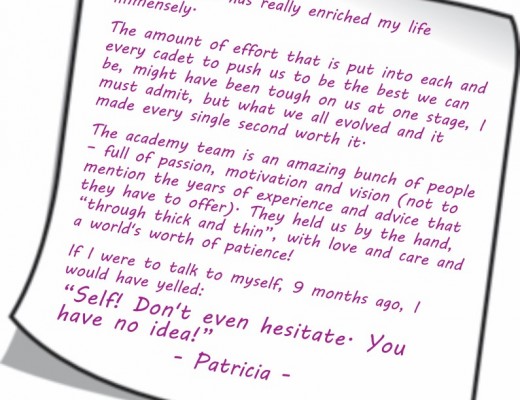 has really enriched my life
immensely.
The amount of effort that is put into each and
every cadet to push us to be the best we can
be, might have been tough on us at one stage, I
must admit, but what we all evolved and it
made every single second worth it.
The academy team is an amazing bunch of people
- full of passion, motivation and vision (not to
mention the years of experience and advice that
they have to offer). They held us by the hand,
“through thick and thin”, with love and care and
a world's worth of patience!
If I were to talk to myself, 9 months ago, I
would have yelled:
“Self! Don't even hesitate. You
have no idea!”
- Patricia -